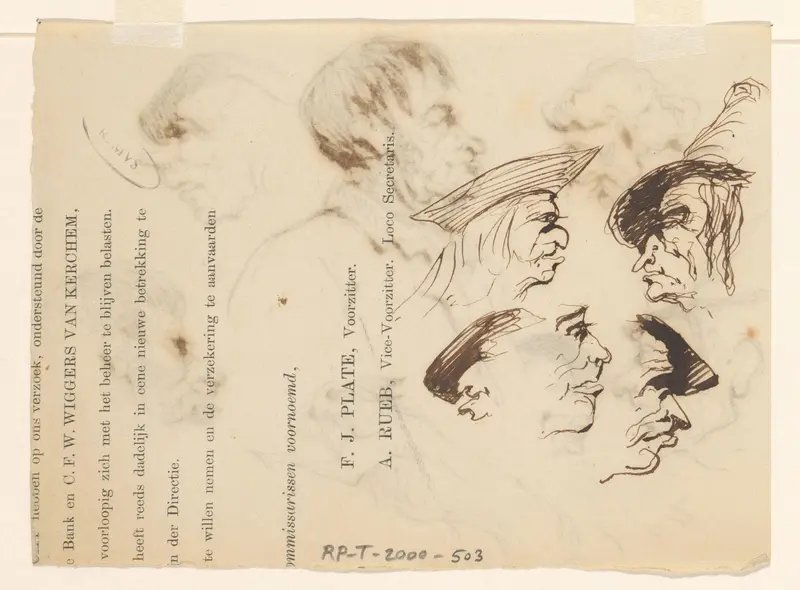 hebben op ons verzoek, ondersteund door de
Bank en C. F. W. WIGGERS VAN KERCHEM,
voorloopig zich met het beheer te blijven belasten.
heeft reeds dadelijk in eene nieuwe betrekking te
n der Directie.
te willen nemen en de verzekering te aanvaarden
ommissarissen voornoemd,
F. J. PLATE, Voorzitter.
A. RUEB, Vice-Voorzitter. Loco Secretaris.
RP-T-2000-503